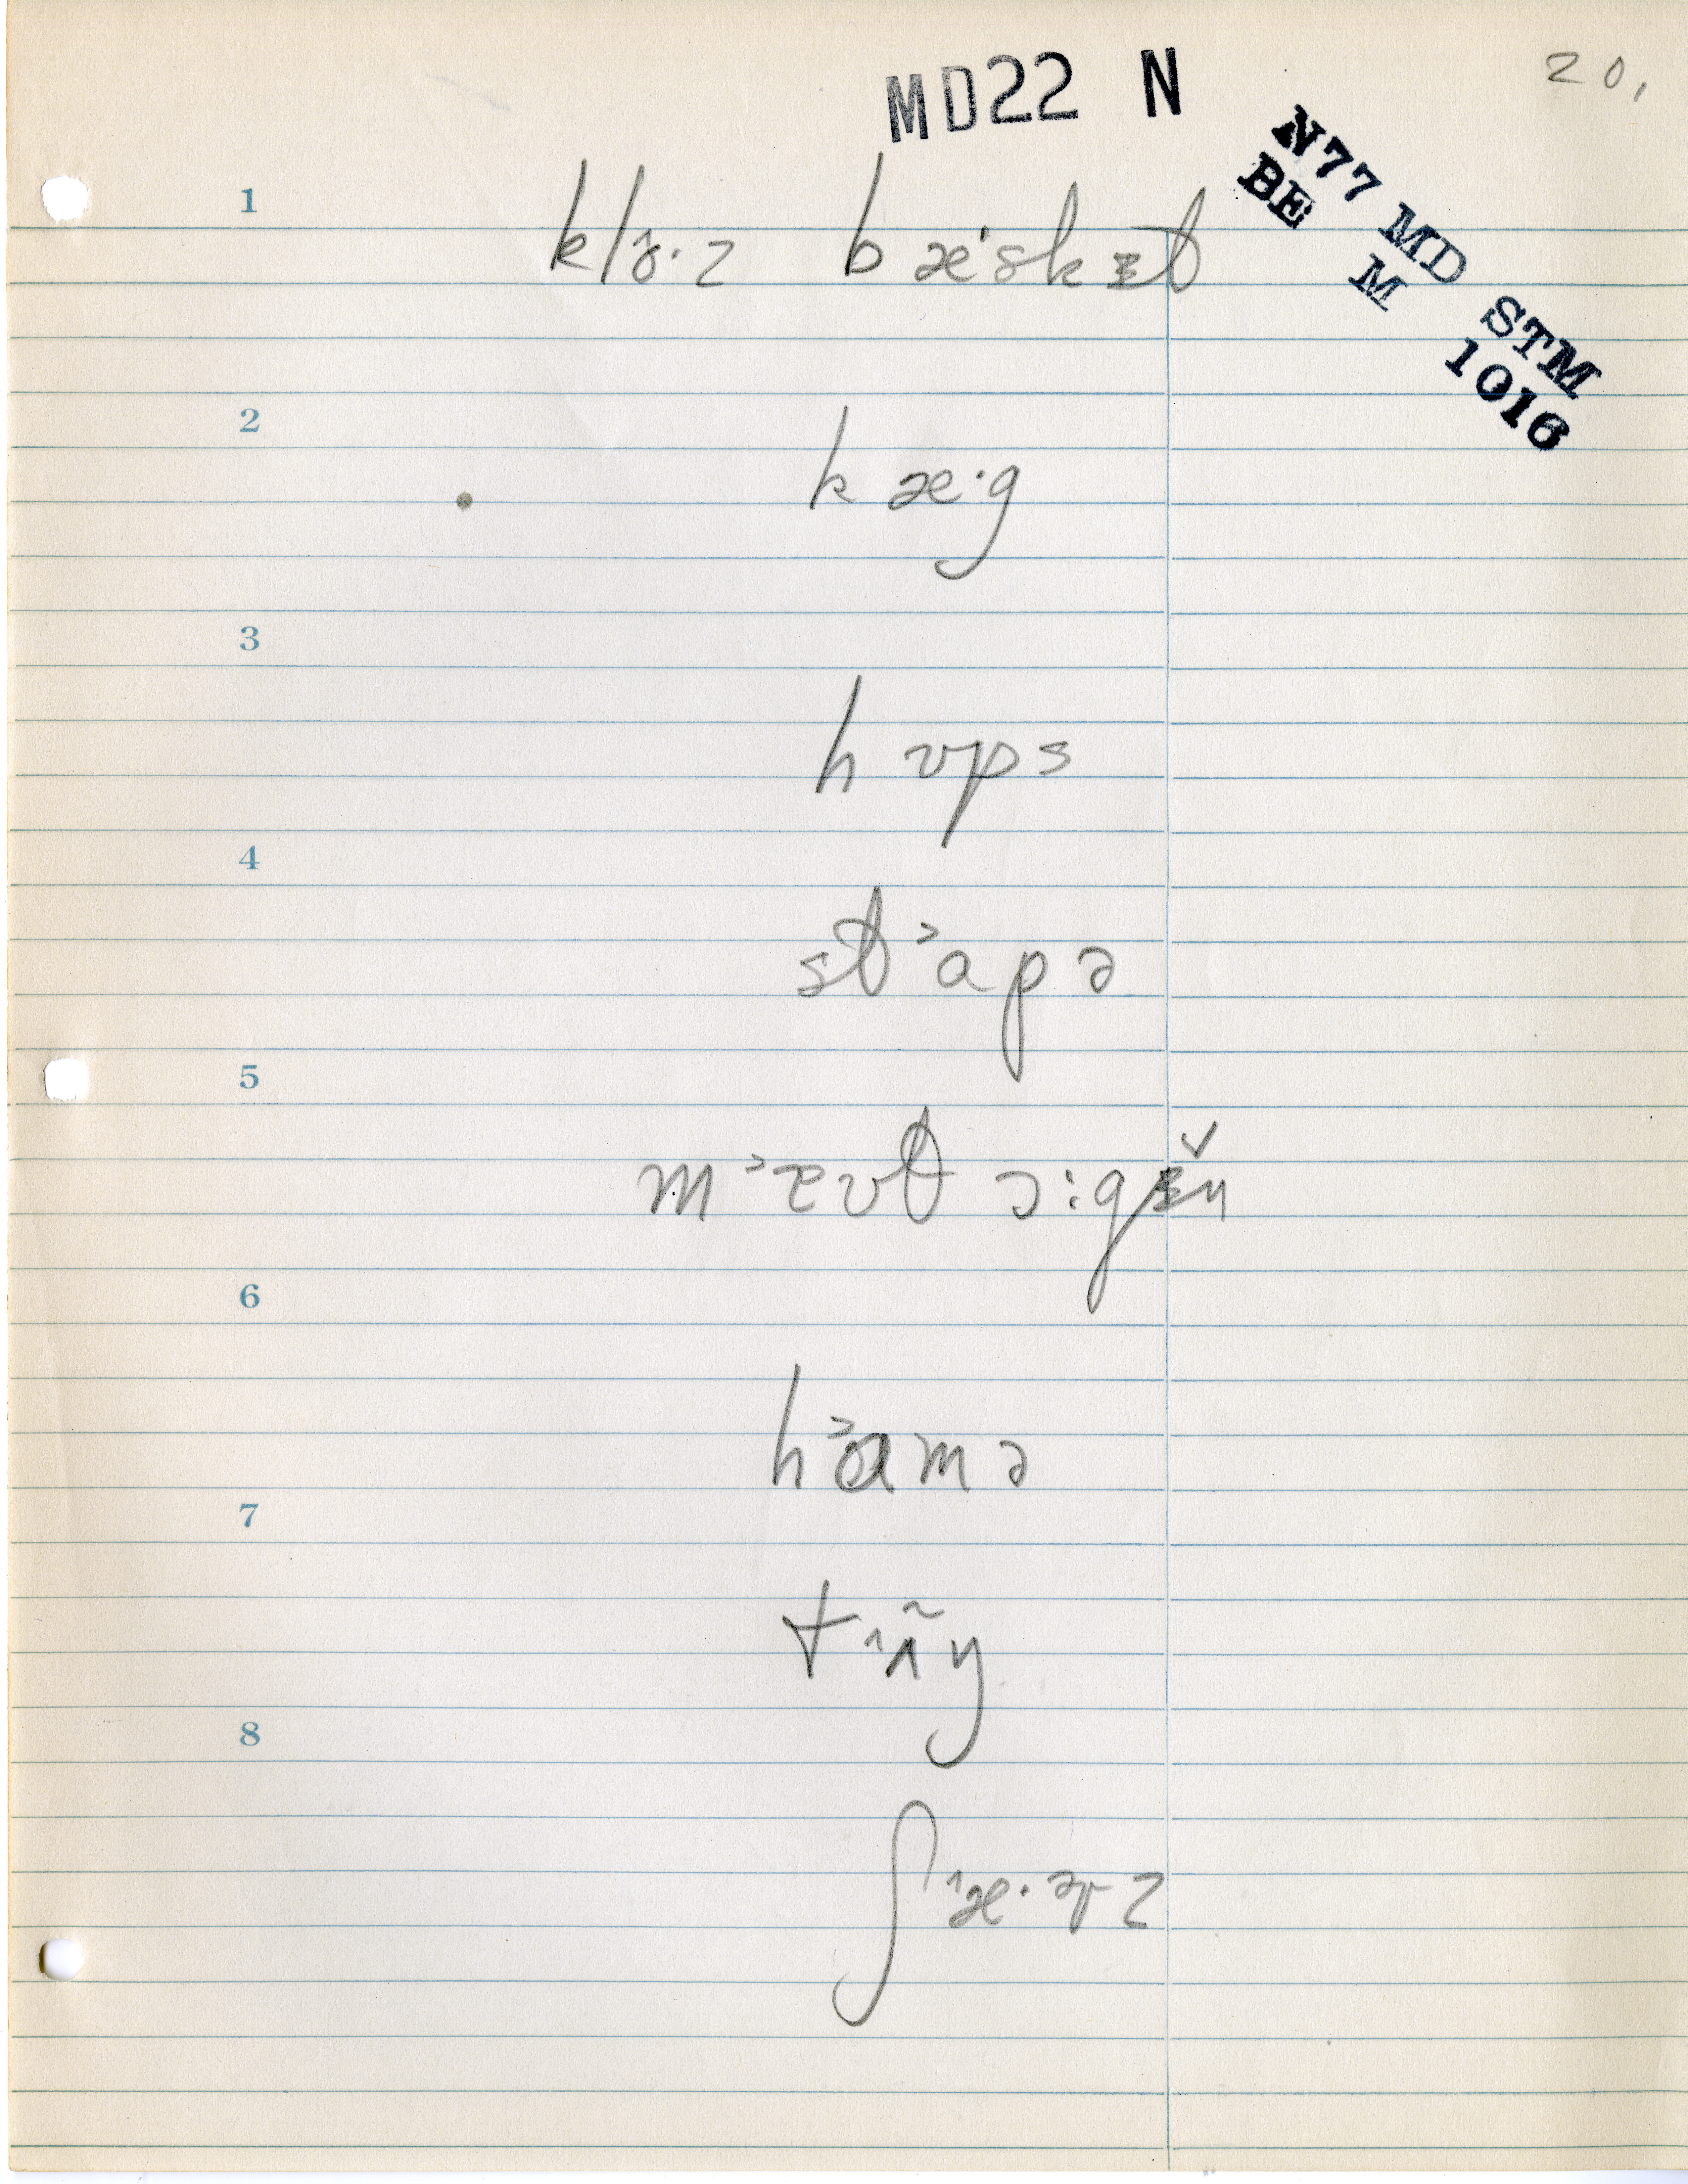 MD22 N
20,
N77 MD STM
BE M 1016
1
klɞ·z bæˑskɪt
2
kæ·g
3
hʊps
4
st˃apə
5
m˃ɐʊt ɔ:gɪ̆n
6
h˃ɑmə
7
8
ʃ˄æ·ɚz